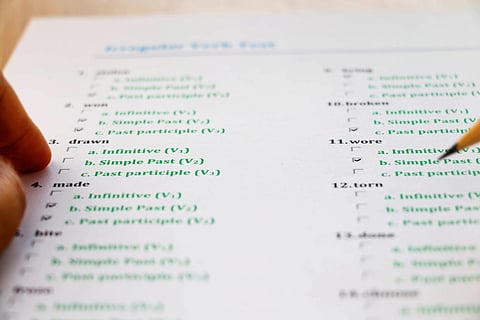 Irregular Verb Test
a. Infinitive (V₁)
b. Simple Past (V₂)
c. Past participle (V₃)
2. won
a. Infinitive (V₁)
b. Simple Past (V₂)
c. Past participle (V₃)
3. drawn
a. Infinitive (V₁)
b. Simple Past (V₂)
c. Past participle (V₃)
4. made
a. Infinitive (V₁)
b. Simple Past (V₂)
c. Past participle (V₃)
bite
a. Infinitive (V₁)
b. Simple Past (V₂)
c. Past participle (V₃)
a. Infinitive (V₁)
a. Infinitive (V₁)
b. Simple Past (V₂)
c. Past participle
10. broken
a. Infinitive (V₁)
b. Simple Past (V₂)
c. Past participle
11. wore
a. Infinitive (V₁)
b. Simple Past
c. Past participle
12. torn
a. Infinitive (V₁)
b. Simple Past (V₂)
c. Past participle
13. done
a. Infinitive
b. Simple Past
c. Past participle
a. Infinitive